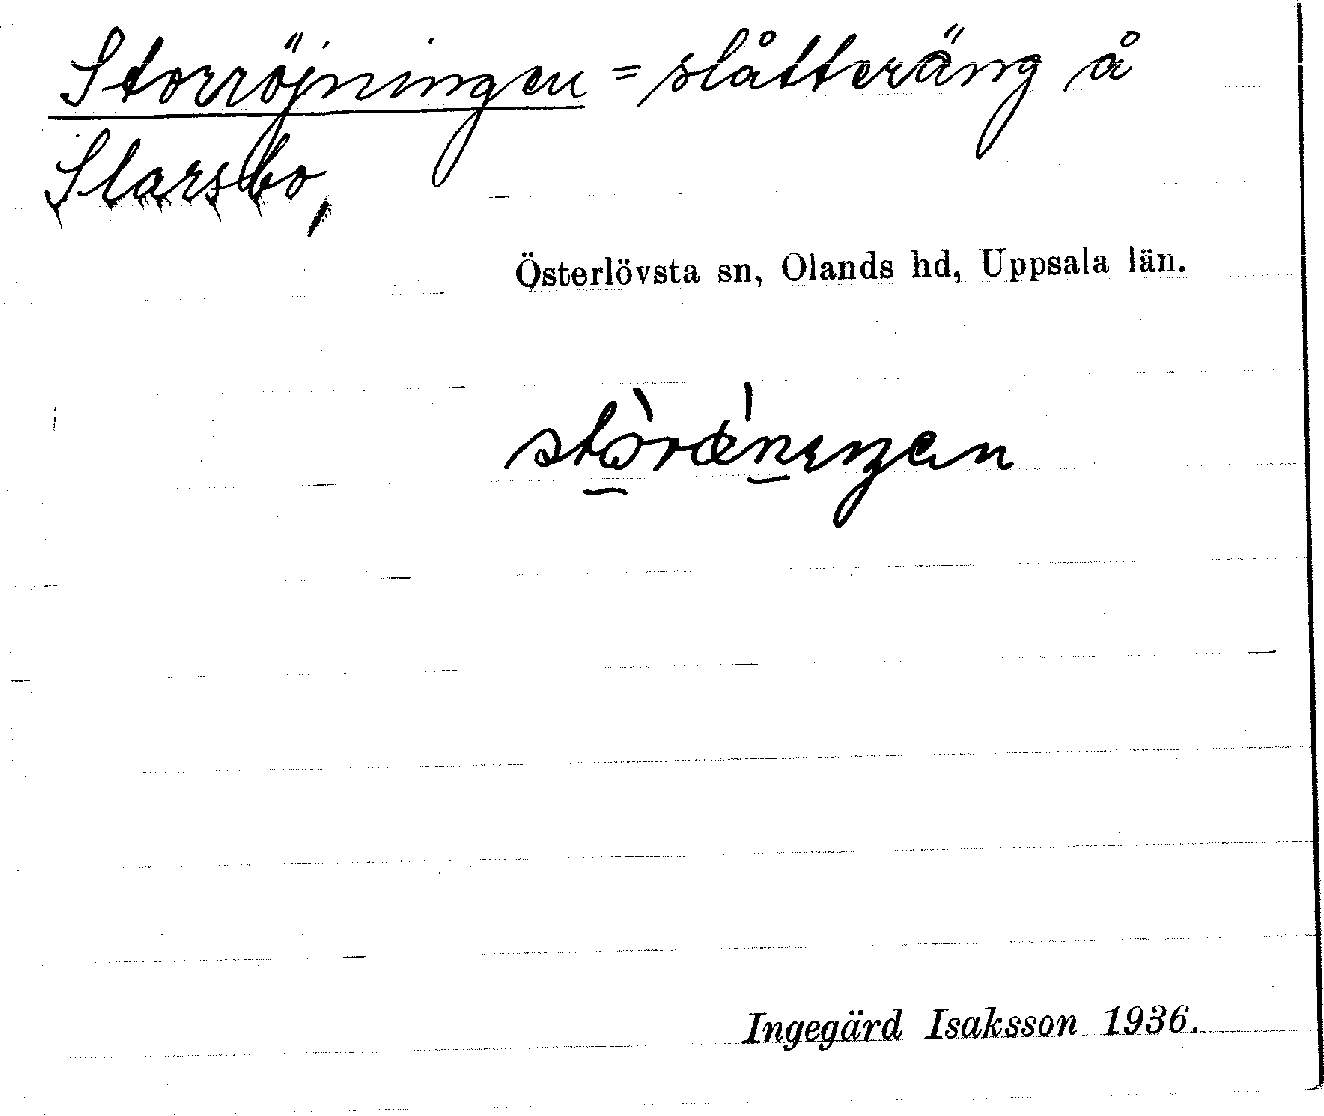 Storröjningen = slåtteräng å
Slarsbo,
Österlövsta sn, Olands hd, Uppsala län.
Ingegärd Isaksson 1936.